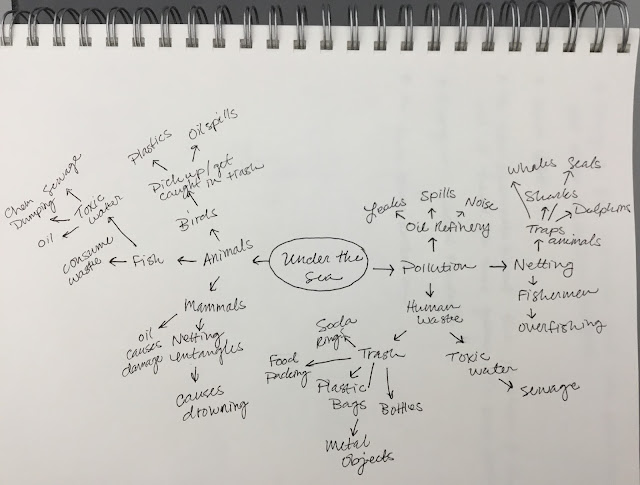 Plastics
Oil spills
Pick up/get
caught in trash
Birds
Chem
Dumping
Sewage
Toxic
water
oil
consume
waste
Fish
Animals
Under the
Sea
Mammals
oil
causes
damage
Netting
entangles
causes
drowning
Leaks
Spills
Noise
Oil Refinery
Pollution
Human
Waste
Whales
Seals
Sharks
Dolphins
Traps
animals
Netting
Fishermen
overfishing
Soda
Rings
Food
packing
Trash
Plastic
Bags
Bottles
Metal
Objects
Toxic
water
sewage